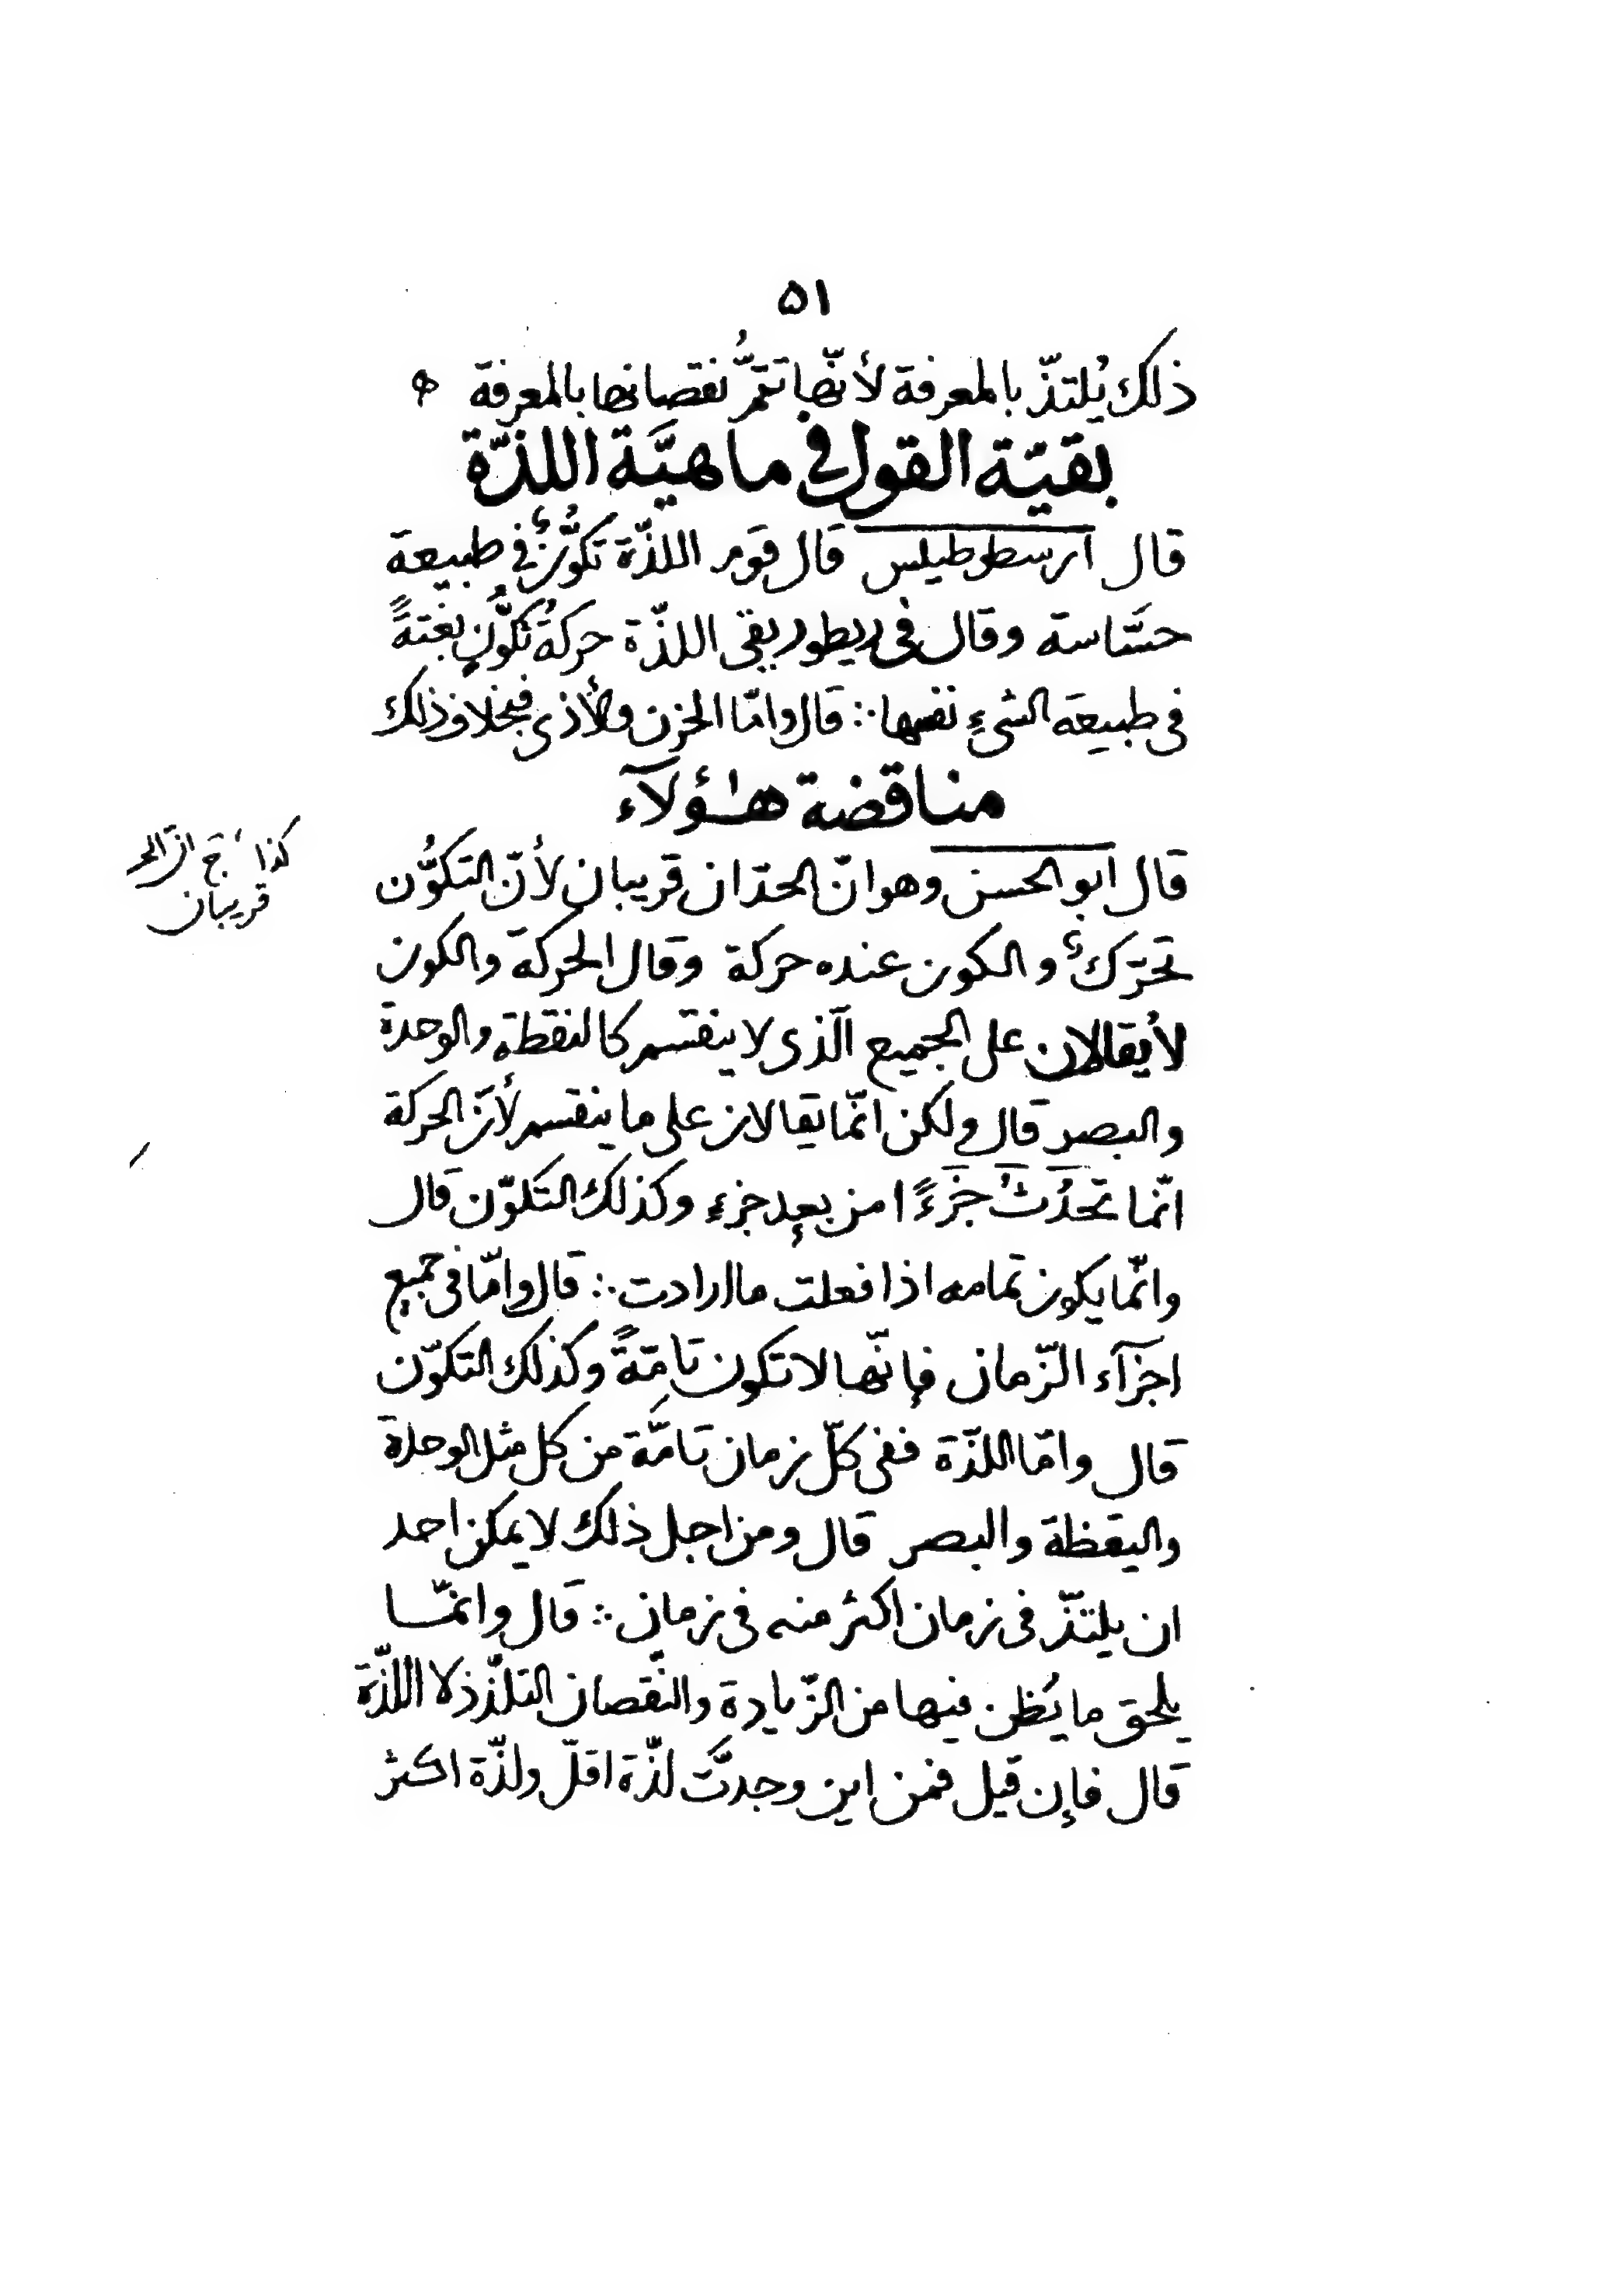 ٥١
ذلك يُلتذّ بالمعرفة لأنّها تتمُّ نقصانها بالمعرفة ه
بقيّة القول في ماهيَّة اللذّة
قال ارسطوطيلس قال قوم اللذّة تكوُّنٌ في طبيعة
حسَّاسة وقال في ريطوريقى اللذّة حركةُ تكوُّنٍ بغتةً
في طبيعة الشىءِ نفسها ∴ قال وامّا الحزن والأذى فبخلاف ذلك
مناقضة هٰؤلآء
قال ابو الحسن وهو انّ الحدّان قريبان لأنّ التكوُّن
تحرّكٌ والكون عنده حركة وقال الحركة والكون
لا يُقالان على الجميع الّذى لا ينقسم كالنقطة والوحدة
والبصر قال ولكن انّما يقالان على ما ينقسم لأنّ الحركة
انّما تحدُثُ جزءًا من بعدِ جزءٍ وكذلك التكوّن قال
وانّما يكون تمامه اذا فعلت ما ارادت ∴ قال وامّا في جميع
اجزآء الزّمان فإنّها لا تكون تامّةً وكذلك التكوّن
قال وامّا اللذّة ففى كلّ زمان تامّة من كل مثل الوحدة
واليقظة والبصر قال ومن اجل ذلك لا يمكن احد
ان يلتذّ في زمان اكثر منه في زمانٍ ∴ قال وانمّا
يلحق ما يُظن فيها من الزّيادة والنّقصان التلذّذ لا اللّذّة
قال فإن قيل فمن اين وجدتَّ لذّة اقلّ ولذّة اكثر
كذا
قريبان